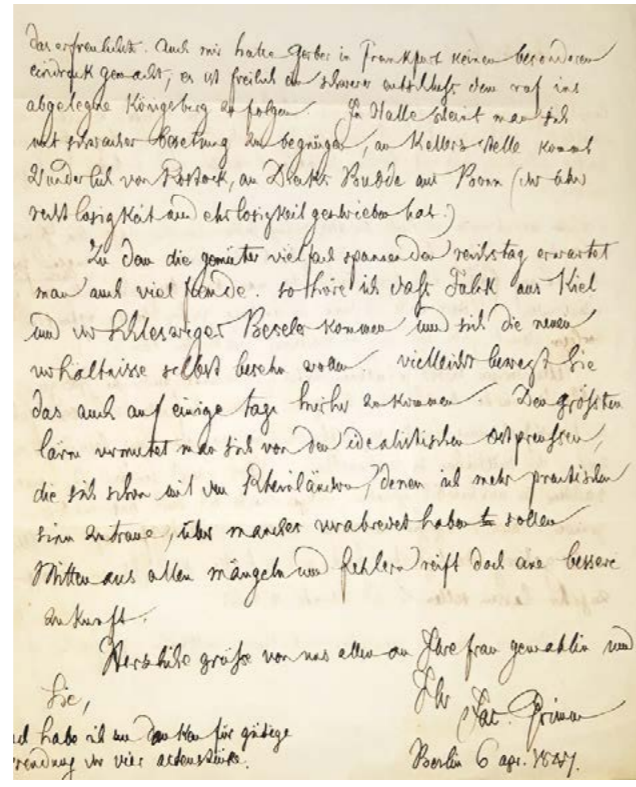 das erfreulichste. Auch mir hatte Gerber in Frankfurt keinen besonderen
eindruck gemacht, es ist freilich ein schwerer entschluss dem ruf ins
abgelegne Königsberg zu folgen. In Halle scheint man sich
mit schwacher besetzung zu begnügen, an Kellers stelle kommt
Wunderlich von Rostock, an Diecks Budde aus Bonn (der über
rechtlosigkeit und ehrlosigkeit geschrieben hat.)
Zu dem die gemüter vielfach spannenden reichstag erwartet
man auch viel fremde. so höre ich dass Falck aus Kiel
und der Schleswiger Beseler kommen und sich die neuen
verhältnisse selbst besehn wollen vielleicht bewegt Sie
das auch auf einige tage hierher zu kommen. Den grössten
lärm vermutet man sich von den idealistischen ostpreussen,
die sich schon mit den Rheinländern, denen ich mehr practischen
sinn zutraue, über manches verabredet haben sollen
Mitten aus allen mängeln und fehlern reift doch eine bessere
zukunft.
Herzliche grüsse von uns allen an Ihre frau gemahlin und
Sie,
Ihr Jac. Grimm
habe ich zu danken für gütige
der vier actenstücke.
Berlin 6 apr. 1847.